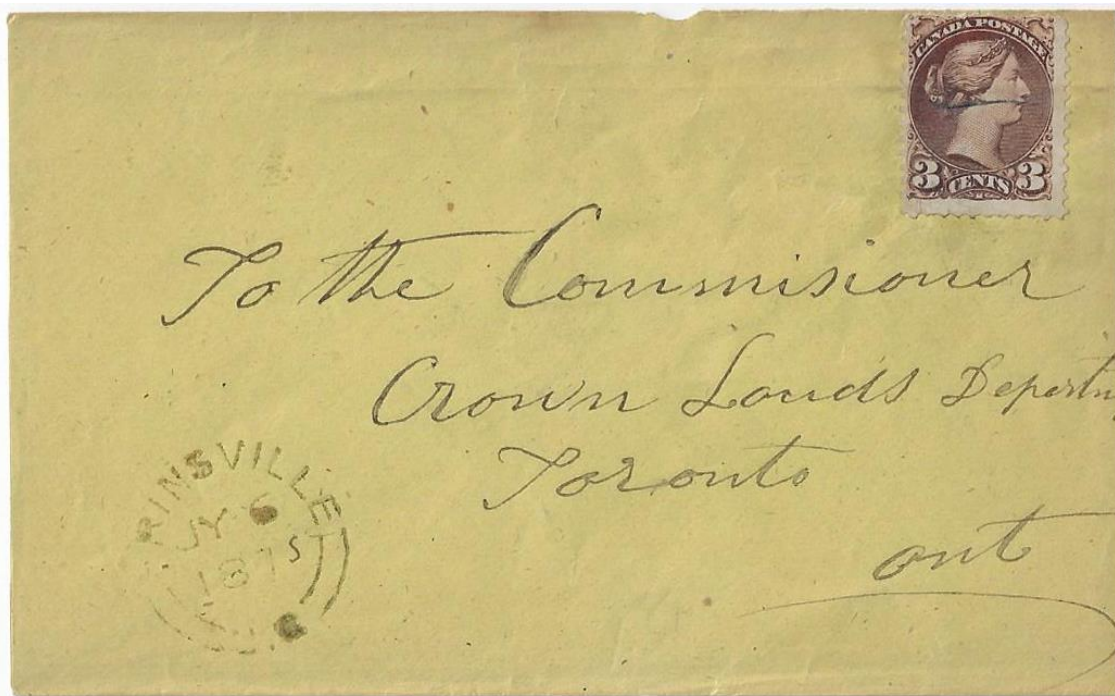 CANADA POSTAGE
3 CENTS 3
To the Commisioner
Crown Lands
Toronto
ont
RINSVILLE
JY 6
1875